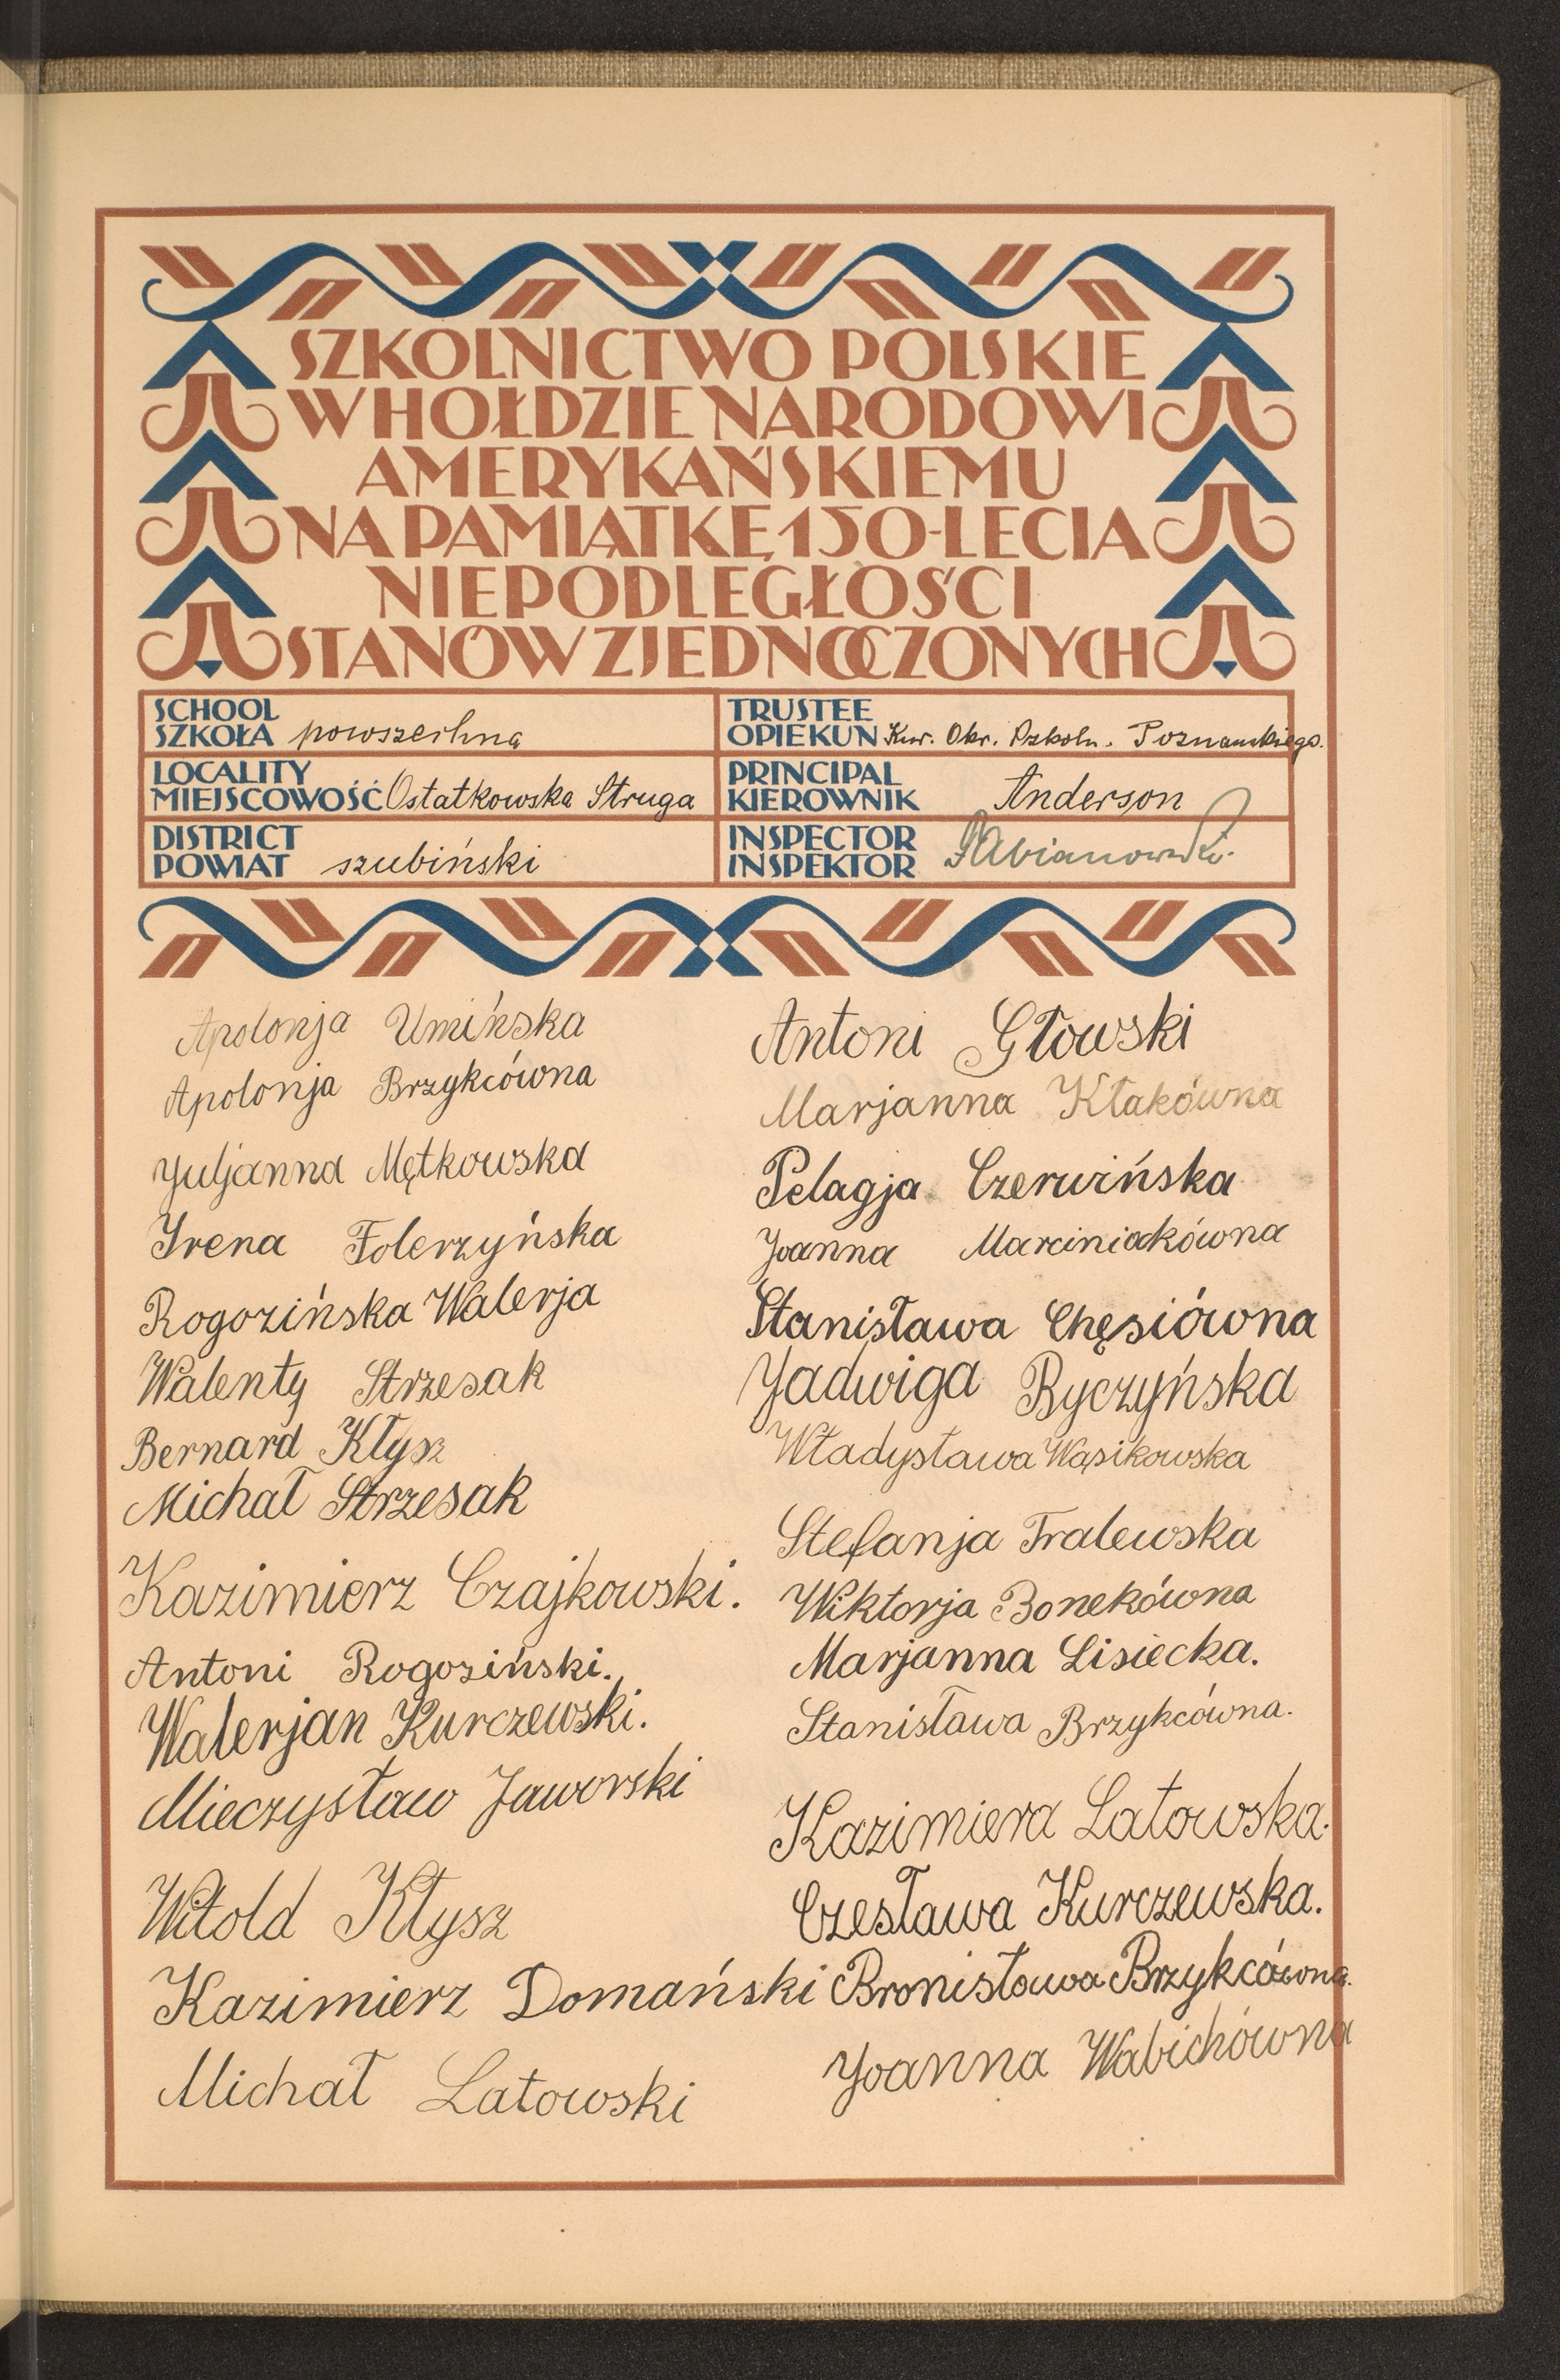 SZKOLNICTWO POLSKIE
W HOŁDZIE NARODOWI
AMERYKAŃSKIEMU
NA PAMIĄTKĘ 150-LECIA
NIEPODLEGŁOŚCI
STANÓW ZJEDNOCZONYCH
SCHOOL
SZKOŁA powszechna
TRUSTEE
OPIEKUN Kur. Okr. Szkoln. Poznańskiego.
LOCALITY
MIEJSCOWOŚĆ Ostatkowska Struga
PRINCIPAL
KIEROWNIK Anderson
DISTRICT
POWIAT szubiński
INSPECTOR
INSPEKTOR Fabianowski
Apolonja Umińska
Apolonja Brzykcówna
Juljanna Mętkowska
Irena Folerzyńska
Rogozińska Walerja
Walenty Strzesak
Bernard Kłysz
Michał Strzesak
Kazimierz Czajkowski.
Antoni Rogoziński.
Walerjan Kurczewski.
Mieczysław Jaworski
Witold Kłysz
Kazimierz Domański
Michał Latowski
Antoni Głowski
Marjanna Kłakówna
Pelagja Czerwińska
Joanna Marciniakówna
Stanisława Chęsiówna
Jadwiga Byczyńska
Władysława Wąsikowska
Stefanja Tralewska
Wiktorja Bonekówna
Marjanna Lisiecka.
Stanisława Brzykcówna.
Kazimiera Latowska.
Czesława Kurczewska.
Bronisława Brzykcówna.
Joanna Wabichówna